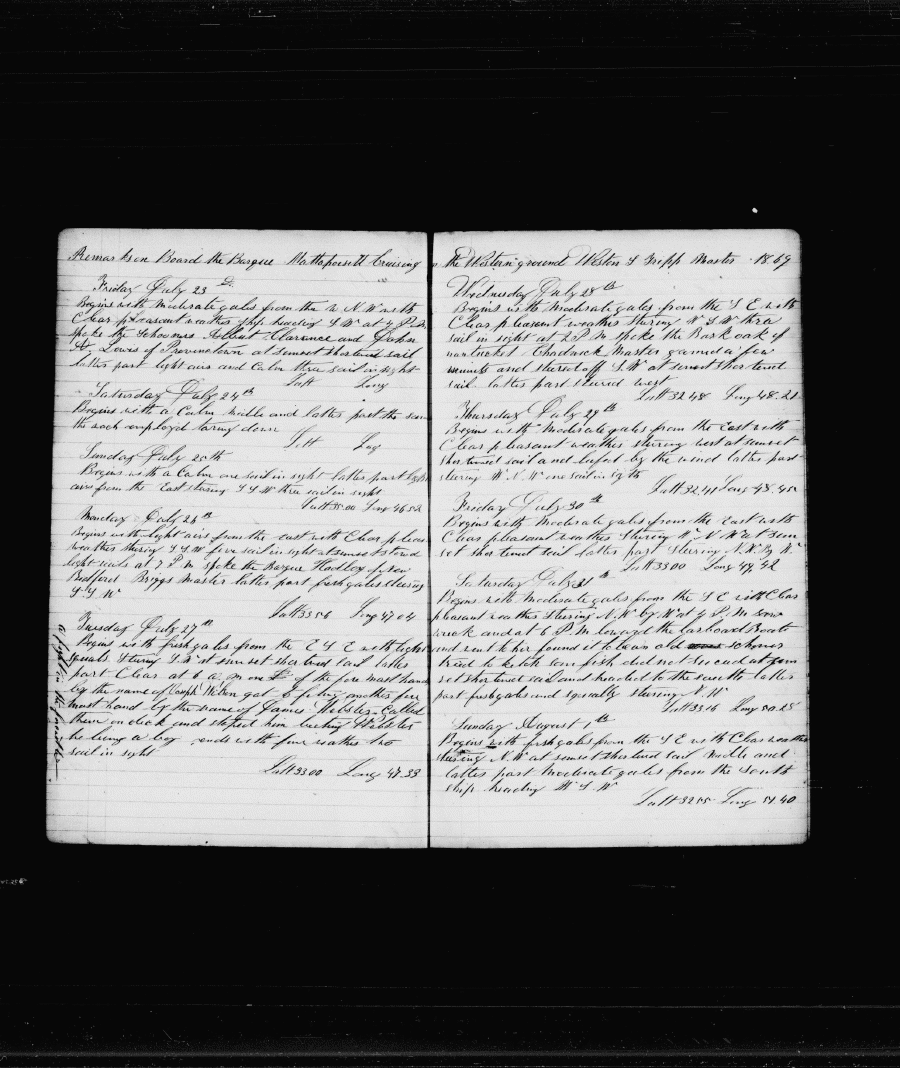 Remarks on Board the Barque Mattapoisett Cruising
Friday July 23 D
Begins with moderate gales from the N. W with
Clear pleasant weather Ship heading S W at 4 P. M.
spoke the Schooners Albert Clarence and John
A Lewis of Provincetown at sunset shortend sail
latter part light airs and Calm three sail in sight
Latt Long
Saturday July 24 th
Begins with a Calm Middle and latter part the same
the watch employd taring down
Latt Long
Sunday July 25th
Begins with a Calm one sail in sight latter part light
airs from the East stering S S W three sail in sight
Latt 35.00 Long 46.52
Monday July 26 th
Begins with light airs from the east with Clear pleas
weather stering S S W five sail in sight at sunset
light sails at 7 P. M spoke the Barque Hadley of New
Bedford Briggs Master latter part fresh gales stering
S S W
Latt 33.56 Long 47.04
Tuesday July 27 th
Begins with fresh gales from the E S E with light
squals Stering S. W at sunset shortend sail latter
part Clear at 6 a. m one of the foremast hands
by the name of Joseph got to another fore
mast hand by the name of James Webster Called
them on deck and stoped him Webster
he being a boy ends with fine weather two
sail in sight
Latt 33.00 Long 47.33
a fight in the forecastle
the Western ground Weston S Tripp Master 1869
Wednesday July 28 th
Begins with Moderate gales from the S E with
Clear pleasant weather stering W S W three
sail in sight at 2 P M spoke the Bark oak of
nantucket Chadwick Master gamed a few
minuts and stered off S. W at sunset shortend
sail latter part stered west
Latt 32.48 Long 48.21
Thursday July 29 th
Begins with Moderate gales from the East with
Clear pleasant weather stering west at sunset
shortened sail and lufed by the wind latter part
stering W. N. W one sail in sight
Latt 32.41 Long 48.45
Friday July 30 th
Begins with Moderate gales from the East with
Clear pleasant weather Stering W N W at sun
set shortened sail latter part Stering N. W. By W.
Latt 33.00 Long 49.42
Saturday July 31 th
Begins with moderate gales from the S E with Clear
pleasant weather Stering N. W by W at 4 P. M saw
wreck and at 6 P. M lowered the larboard Boate
and went to her found it to be an old schoner
tried to ketch som fish did not succead at sun
set shortened sail and headed to the south latter
part fresh gales and squally stering N. W
Latt 33.16 Long 50.28
Sunday August 1 th
Begins with fresh gales from the S E with Clear weather
stering N. W at sunset shortend sail Middle and
latter part Moderate gales from the South
ship heading W S. W
Latt 32.55 Long 51.40